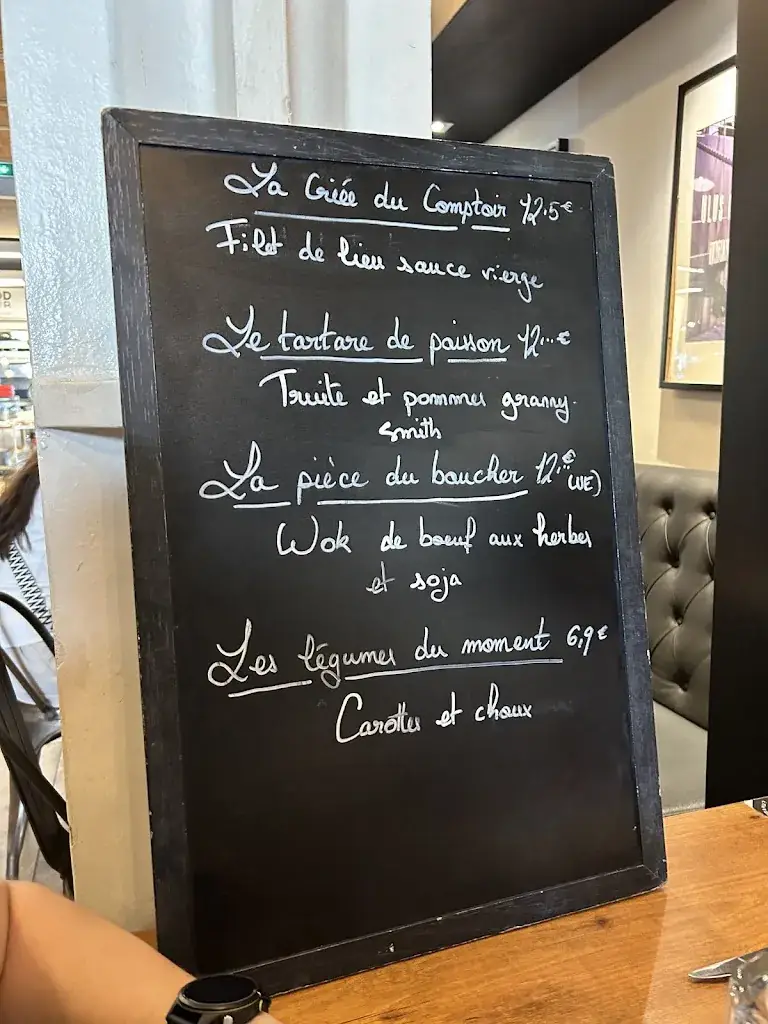 La Criée du Comptoir 12.5€
Filet de lieu sauce vierge
Le tartare de poisson 12...€
Truite et pommes granny-
smith
La pièce du boucher 12...€
(UE)
Wok de boeuf aux herbes
et soja
Les légumes du moment 6,9€
Carottes et choux